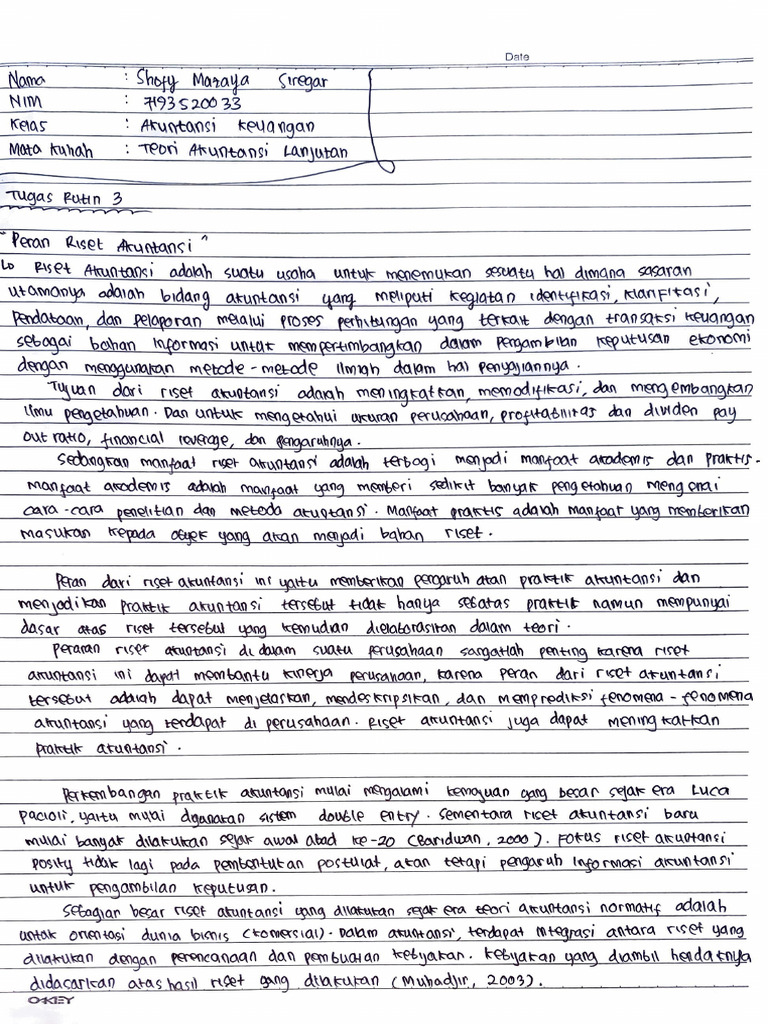 Date
Nama : Shofy Maraya Siregar
NIM : 7193520033
Kelas : Akuntansi Keuangan
Mata Kuliah : Teori Akuntansi Lanjutan
Tugas Rutin 3
"Peran Riset Akuntansi"
Riset Akuntansi adalah suatu usaha untuk menemukan sesuatu hal dimana sasaran
utamanya adalah bidang akuntansi yang meliputi kegiatan identifikasi, klarifikasi,
pendataan, dan pelaporan melalui proses perhitungan yang terkait dengan transaksi keuangan
sebagai bahan informasi untuk mempertimbangkan dalam pengambilan keputusan ekonomi
dengan menggunakan metode-metode ilmiah dalam hal penyajiannya.
Tujuan dari riset akuntansi adalah meningkatkan, memodifikasi, dan mengembangkan
ilmu pengetahuan. Dan untuk mengetahui ukuran perusahaan, profitabilitas dan dividen pay
out ratio, financial leverage, dan pengaruhnya.
Sedangkan manfaat riset akuntansi adalah terbagi menjadi manfaat akademis dan praktis.
Manfaat akademis adalah manfaat yang memberi sedikit banyak pengetahuan mengenai
cara-cara penelitian dan metoda akuntansi. Manfaat praktis adalah manfaat yang memberikan
masukan kepada obyek yang akan menjadi bahan riset.
Peran dari riset akuntansi ini yaitu memberikan pengaruh atan praktik akuntansi dan
menjadikan praktik akuntansi tersebut tidak hanya sebatas praktik namun mempunyai
dasar atas riset tersebut yang kemudian dielaborasikan dalam teori.
Peraran riset akuntansi didalam suatu perusahaan sangatlah penting karena riset
akuntansi ini dapat membantu kinerja perusahaan, karena peran dari riset akuntansi
tersebut adalah dapat menjelaskan, mendeskripsikan, dan memprediksi fenomena-fenomena
akuntansi yang terdapat di perusahaan. Riset akuntansi juga dapat meningkatkan
praktik akuntansi.
Perkembangan praktik akuntansi mulai mengalami kemajuan yang besar sejak era Luca
Pacioli, yaitu mulai digunakan sistem double entry. Sementara riset akuntansi baru
mulai banyak dilakukan sejak awal abad ke-20 (Baridwan, 2000). Fokus riset akuntansi
positif tidak lagi pada pembentukan postulat, akan tetapi pengaruh informasi akuntansi
untuk pengambilan keputusan.
Sebagian besar riset akuntansi yang dilakukan sejak era teori akuntansi normatif adalah
untuk orientasi dunia bisnis (komersial). Dalam akuntansi, terdapat integrasi antara riset yang
dilakukan dengan perencanaan dan pembuatan kebijakan. Kebijakan yang diambil hendaknya
didasarkan atas hasil riset yang dilakukan (Muhadjir, 2003).
OKEY